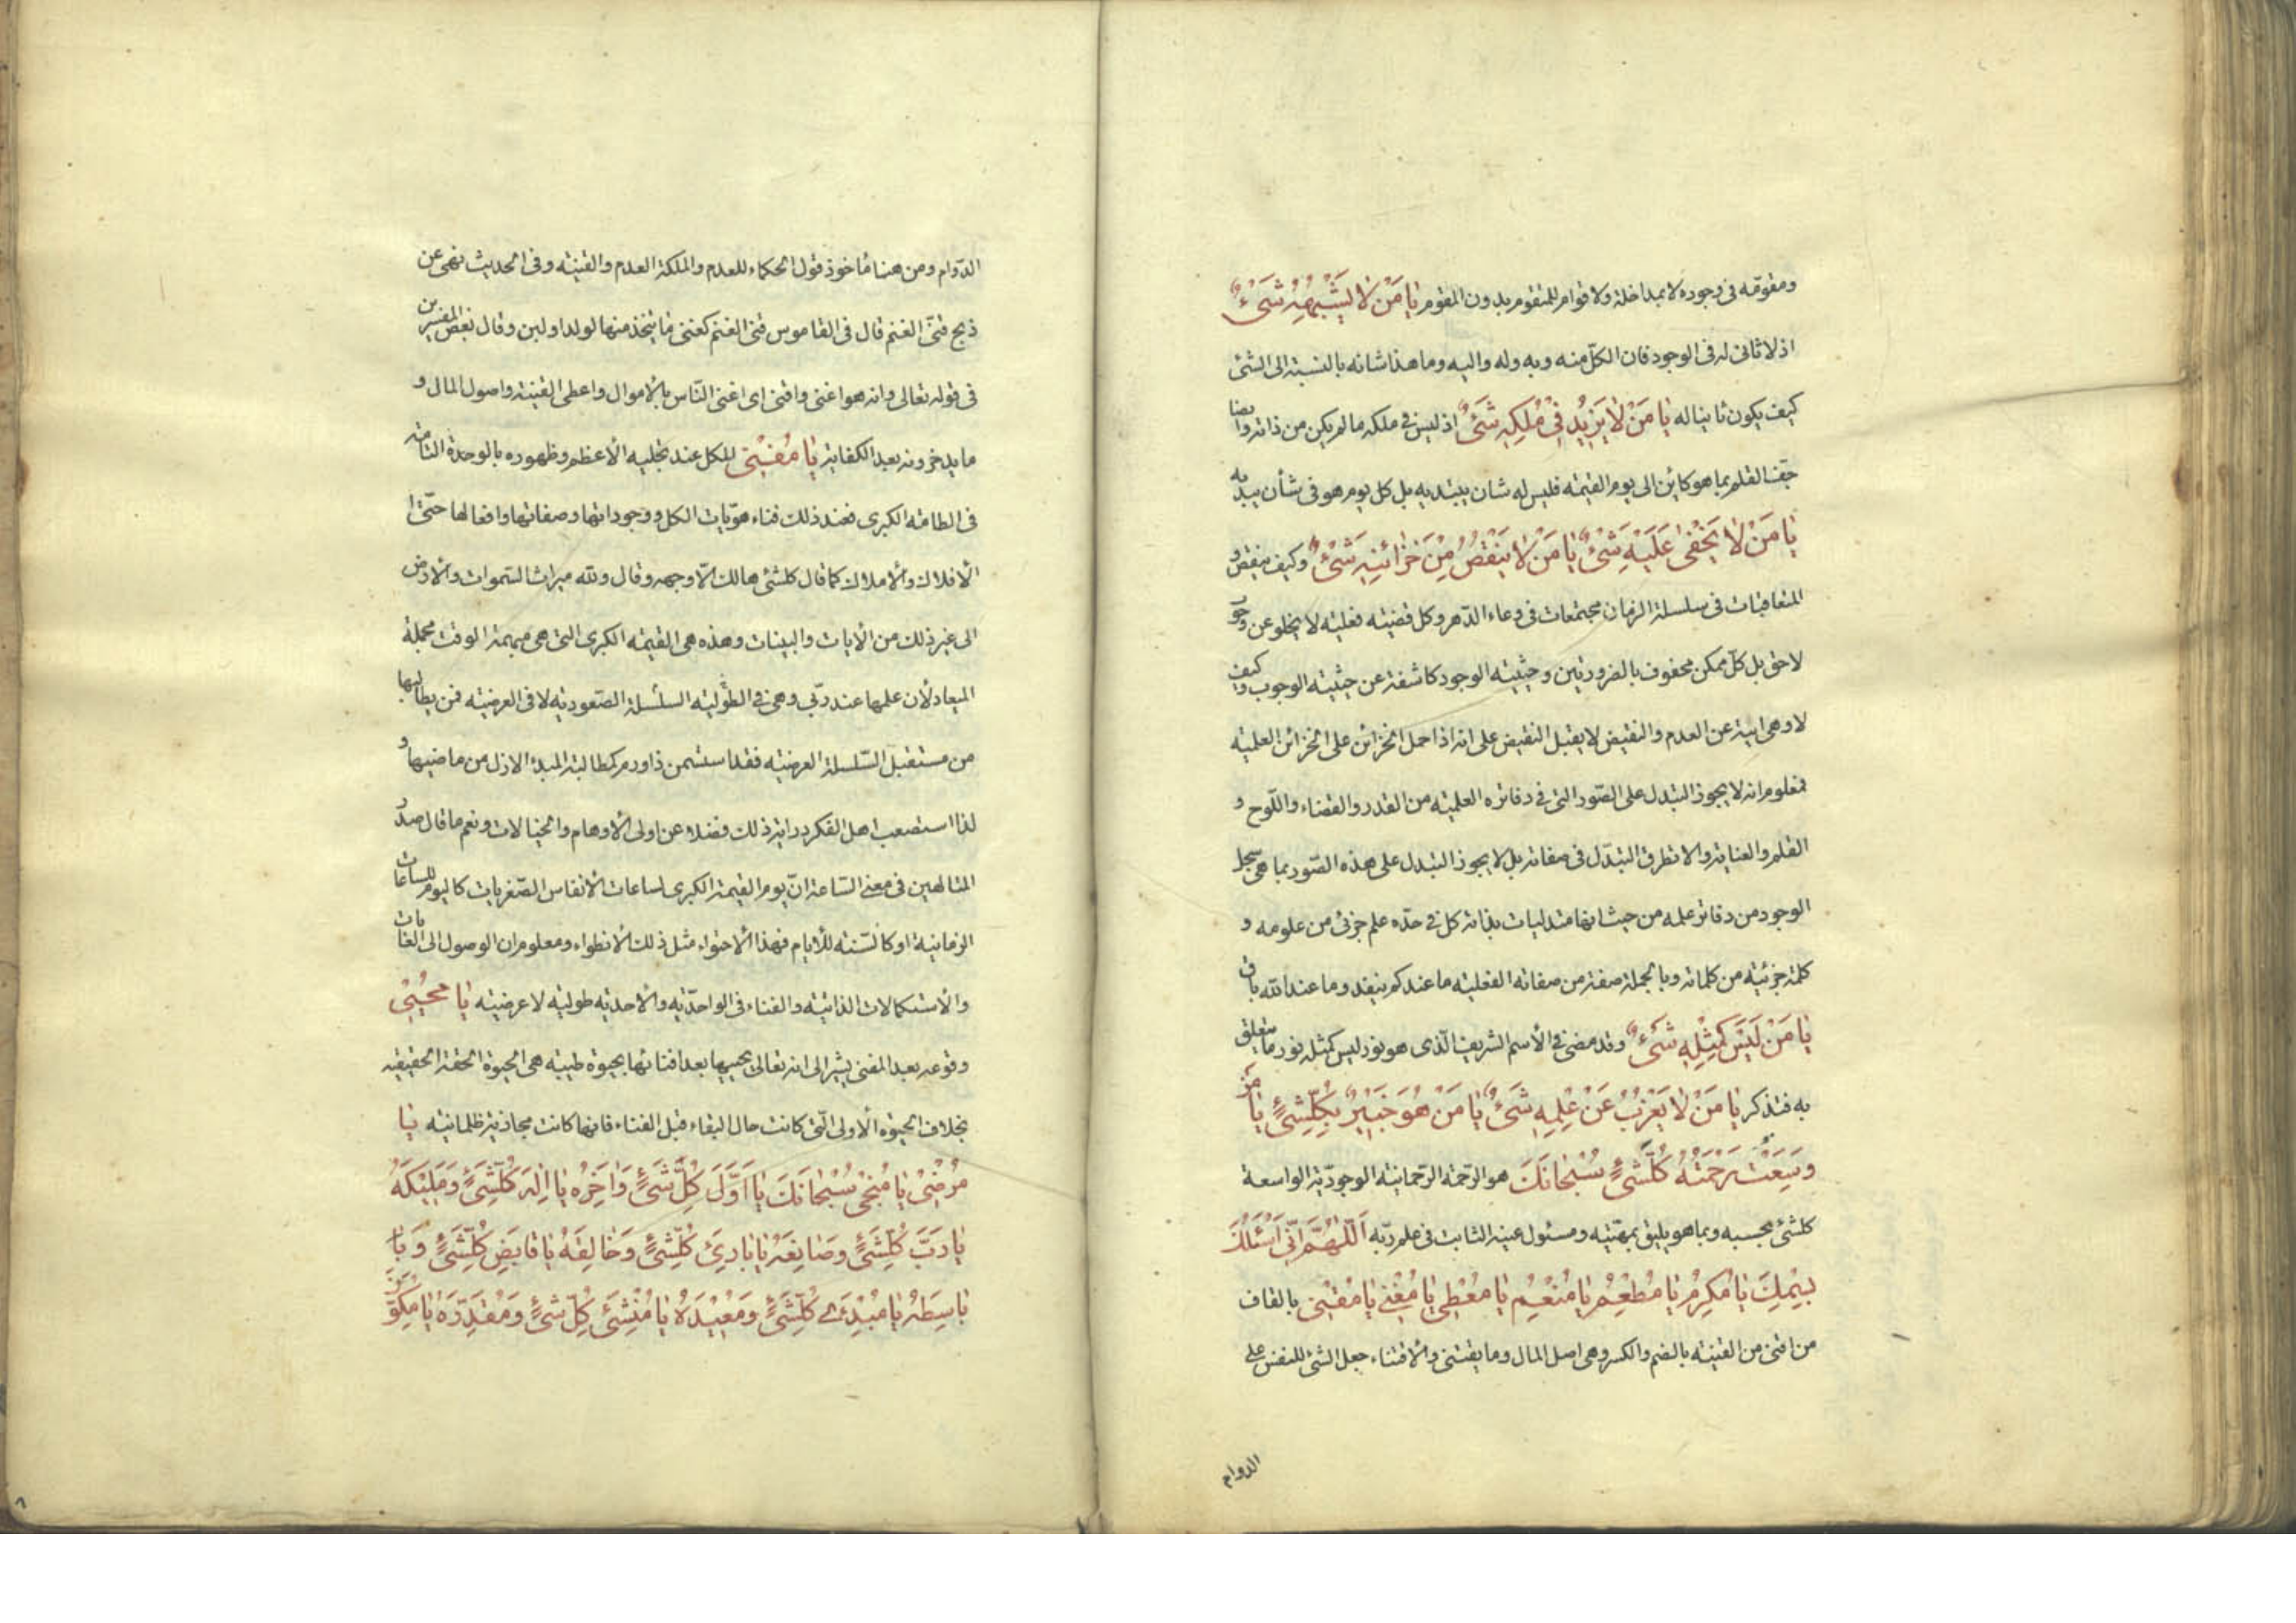 ومقومه فى وجوده لا بمداخلة ولا قوام للمتقوم بدون المقوم يَا مَنْ لَا يُشْبِهُهُ شَىْءٌ
اذ لا ثانى له فى الوجود فان الكلّ منه وبه وله واليه وما هذا شانه بالنسبة الى الشئ
كيف يكون ثانيا له يَا مَنْ لَا يَزِيدُ فِى مُلْكِهِ شَىْءٌ اذ ليس فى ملكه ما لم يكن من ذاته وايضا
جفّ القلم بما هو كائن الى يوم القيمة فليس له شان يبتديه بل كل يوم هو فى شأن يبديه
يَا مَنْ لَا يَخْفى عَلَيْهِ شَىْءٌ يَا مَنْ لَا يَنْقُصُ مِنْ خَزائِنِهِ شَىْءٌ وكيف ينقص و
المتعاقبات فى سلسلة الزمان مجتمعات فى وعاء الدّهر وكل قضيته فعلية لا يخلو عن وجوب
لاحق بل كلّ ممكن محفوف بالضرورتين وحيثية الوجود كاشفة عن حيثية الوجوب وكيف
لا وهى ابية عن العدم والنقيض لا يقبل النقيض على انه اذا حمل الخزائن على الخزائن العلمية
فمعلوم انه لا يجوز التبدل على الصّور التى فى دفاتره العلمية من القدر والقضاء واللّوح و
القلم والعناية والا تطرق التبدّل فى صفاته بل لا يجوز التبدل على هذه الصّور بما هى سجل
الوجود من دفاتر علمه من حيث انها متدليات بذاته كل فى حدّه علم جزئى من علومه و
كلمة جزئية من كلماته وبالجملة صفة من صفاته الفعلية ما عندكم ينفد وما عند الله باق
يَا مَنْ لَيْسَ كَمِثْلِهِ شَىْءٌ وقد مضى فى الأسم الشريف الّذى هو نور ليس كمثله نور ما يتعلق
به فتذكر يَا مَنْ لَا يَعْزُبُ عَنْ عِلْمِهِ شَىْءٌ يَا مَنْ هُوَ خَبِيرٌ بِكُلِّشَىْءٍ يَا مَنْ
وَسِعَتْ رَحْمَتُهُ كُلَّشَىْءٍ سُبْحَانَكَ هو الرّحمة الرّحمانية الوجوديّة الواسعة
كلشئ بحسبه وبما هو يليق بمهيّته ومسئول عينه الثابت فى علم ربّه اَللّهُمَّ اِنّى اَسْئَلُكَ
بِسْمِكَ يَا مُكْرِمُ يَا مُطْعِمُ يَا مُنْعِمُ يَا مُعْطِى يَا مُغْنِى يَا مُقْنِى بالقاف
من اقنى من القنية بالضم والكسر وهى اصل المال وما يقتنى والاقتناء جعل الشئ للنفس على
الدوام
الدّوام ومن هنا ماخوذ قول الحكماء للعدم والملكة العدم والقنية وفى الحديث نهى عن
ذبح قنىّ الغنم قال فى القاموس قنى الغنم كغنى ما يتخذ منها لولد او لبن وقال بعض المفسرين
فى قوله تعالى وانه هو اغنى واقنى اى اغنى النّاس بالأموال واعطى القنية واصول المال و
ما يدخرونه بعد الكفاية يَا مُفْنِى للكل عند تجليه الأعظم وظهوره بالوحدة التامّة
فى الطامة الكبرى فعند ذلك فناء هوّيات الكل ووجوداتها وصفاتها وافعالها حتّى
الأفلاك والأملاك كما قال كلشئ هالك الّا وجهه وقال ولله ميراث السّموات والأرض
الى غير ذلك من الأيات والبينات وهذه هى القيمة الكبرى التى هى مبهمة الوقت مجملة
الميعاد لأن علمها عند ربّى وهى فى الطّولية السلسلة الصّعودية لا فى العرضية فمن يطالبها
من مستقبل السّلسلة العرضية فقد استسمن ذا ورم كمطالبة المبدء الازل من ماضيها و
لذا استصعب اهل الفكر دراية ذلك فضلا عن اولى الأوهام والخيالات ونعم ما قال صدر
المتالهين فى معنى السّاعة انّ يوم القيمة الكبرى لساعات الأنفاس الصّغريات كاليوم للساعات
الزمانية او كالسّنة للأيام فهذا الأحتواء مثل ذلك الأنطواء ومعلوم ان الوصول الى الغايات
والأستكمالات الذاتية والفناء فى الواحدّية والأحدية طولية لا عرضية يَا مُحْيِى
وقوعه بعد المفنى يشير الى انه تعالى يحييها بعد افنائها بحيوة طيبة هى الحيوة الحقة الحقيقيه
بخلاف الحيوة الأولى الّتى كانت حال البقاء قبل الفناء فانها كانت مجازية ظلمانية يَا
مُرْضِى يَا مُنْجِى سُبْحَانَكَ يَا اَوَّلَ كُلِّ شَىْءٍ وَاخِرَهُ يَا اِلهَ كُلِّشَىْءٍ وَمَلِيْكَهُ
يَا رَبَّ كُلِّشَىْءٍ وَصَانِعَهُ يَا بَارِئَ كُلِّشَىْءٍ وَخَالِقَهُ يَا قَابِضَ كُلِّشَىْءٍ وَ يَا
بَاسِطَهُ يَا مُبْدِئَ كُلِّشَىْءٍ وَمُعِيْدَهُ يَا مُنْشِئَ كُلِّ شَىْءٍ وَمُقَدِّرَهُ يَا مُكَوِّنَ